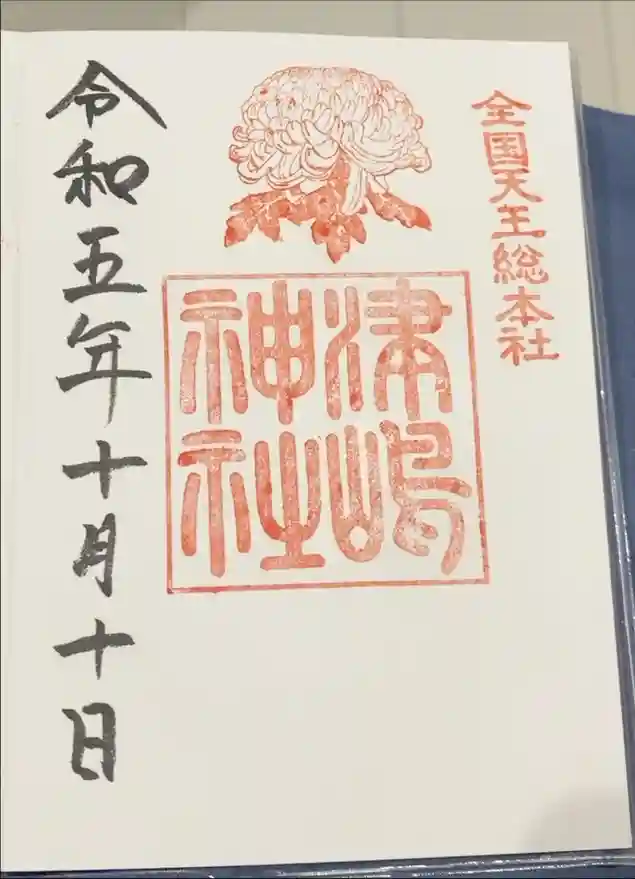 全国天王総本社
津嶋
神社
令和五年十月十日